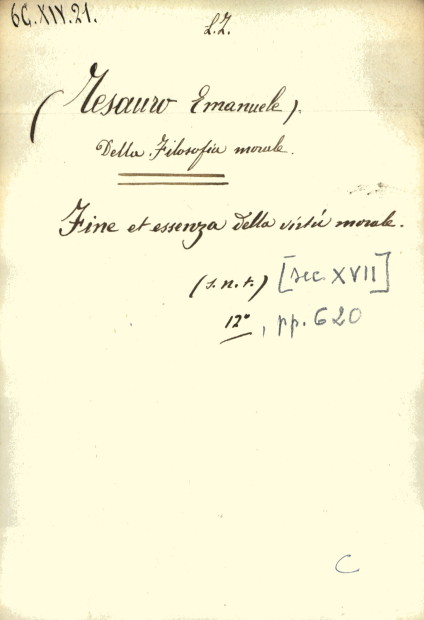 6G.XIV.21.
L.Z.
(Tesauro Emanuele).
Della Filosofia morale.
Fine et essenza della virtù morale.
(s. n. t.) [sec XVII]
12°, pp. 620
C